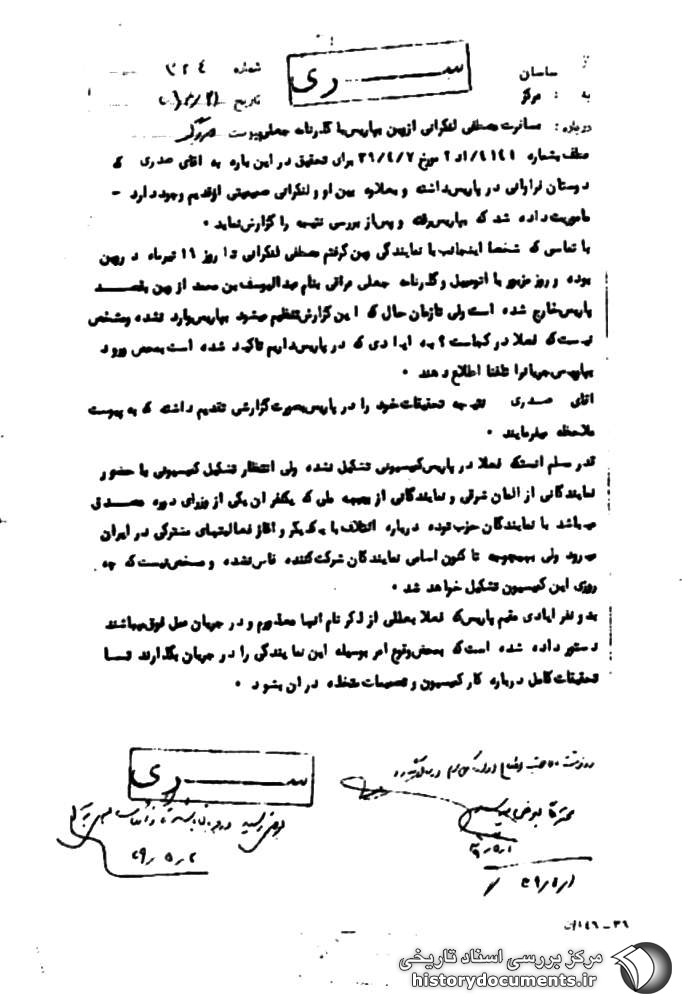 سری
شماره ۳۲۴
ساسان
به : مرکز
تاریخ
درباره : مسافرت مصطفی لنکرانی از بن بپاریس با گذرنامه جعلی پیوست
عطف بشماره ۳۹/۴/۷ مورخ برای تحقیق در این باره به اقای صدری که
دوستان فراوانی در پاریس داشته و بعلاوه بین او و لنکرانی صمیمیتی از قدیم وجود دارد -
ماموریت داده شد که بپاریس رفته و پس از بررسی نتیجه را گزارش نماید .
با تماسی که شخصا اینجانب با نمایندگی بن گرفتم مصطفی لنکرانی تا روز ۱۱ تیرماه در بن
بوده و روز مزبور با اتومبیل و گذرنامه جعلی عراقی بنام عبدالیوسف بن محمد از بن بقصد
پاریس خارج شده است ولی تا زمان حال که این گزارش تنظیم میشود بپاریس وارد نشده و مشخص
نیست که فعلا در کجاست ؟ به ایادی که در پاریس داریم تاکید شده است بمحض ورود
بپاریس جریانرا تلفنا اطلاع دهند .
اقای صدری نتیجه تحقیقات خود را در پاریس بصورت گزارشی تقدیم داشته که به پیوست
ملاحظه میفرمایند .
قدر مسلم انستکه فعلا در پاریس کمیسیونی تشکیل نشده ولی انتظار تشکیل کمیسیونی با حضور
نمایندگانی از المان شرقی و نمایندگانی از جبهه ملی که یکنفر ان یکی از وزرای دوره مصدق
میباشد با نمایندگان حزب توده درباره ائتلاف با یکدیگر و اغاز فعالیتهای مشترکی در ایران
میرود ولی بهیچوجه تا کنون اسامی نمایندگان شرکت کننده فاش نشده و مشخص نیست که چه
روزی این کمیسیون تشکیل خواهد شد .
بدو نفر ایادی مقیم پاریس که فعلا بعللی از ذکر نام انها معذورم و در جریان عمل فوق میباشند
دستور داده شده است که بمحض وقوع امر بوسیله این نمایندگی را در جریان بگذارند تا
تحقیقات کامل درباره کار کمیسیون و تصمیمات متخذه در ان بشود .
سری
۳۹/۵/۱
۳۹/۵/۲
۳۹/۵/۱
۳۶ - ۴۶
مرکز بررسی اسناد تاریخی
historydocuments.ir